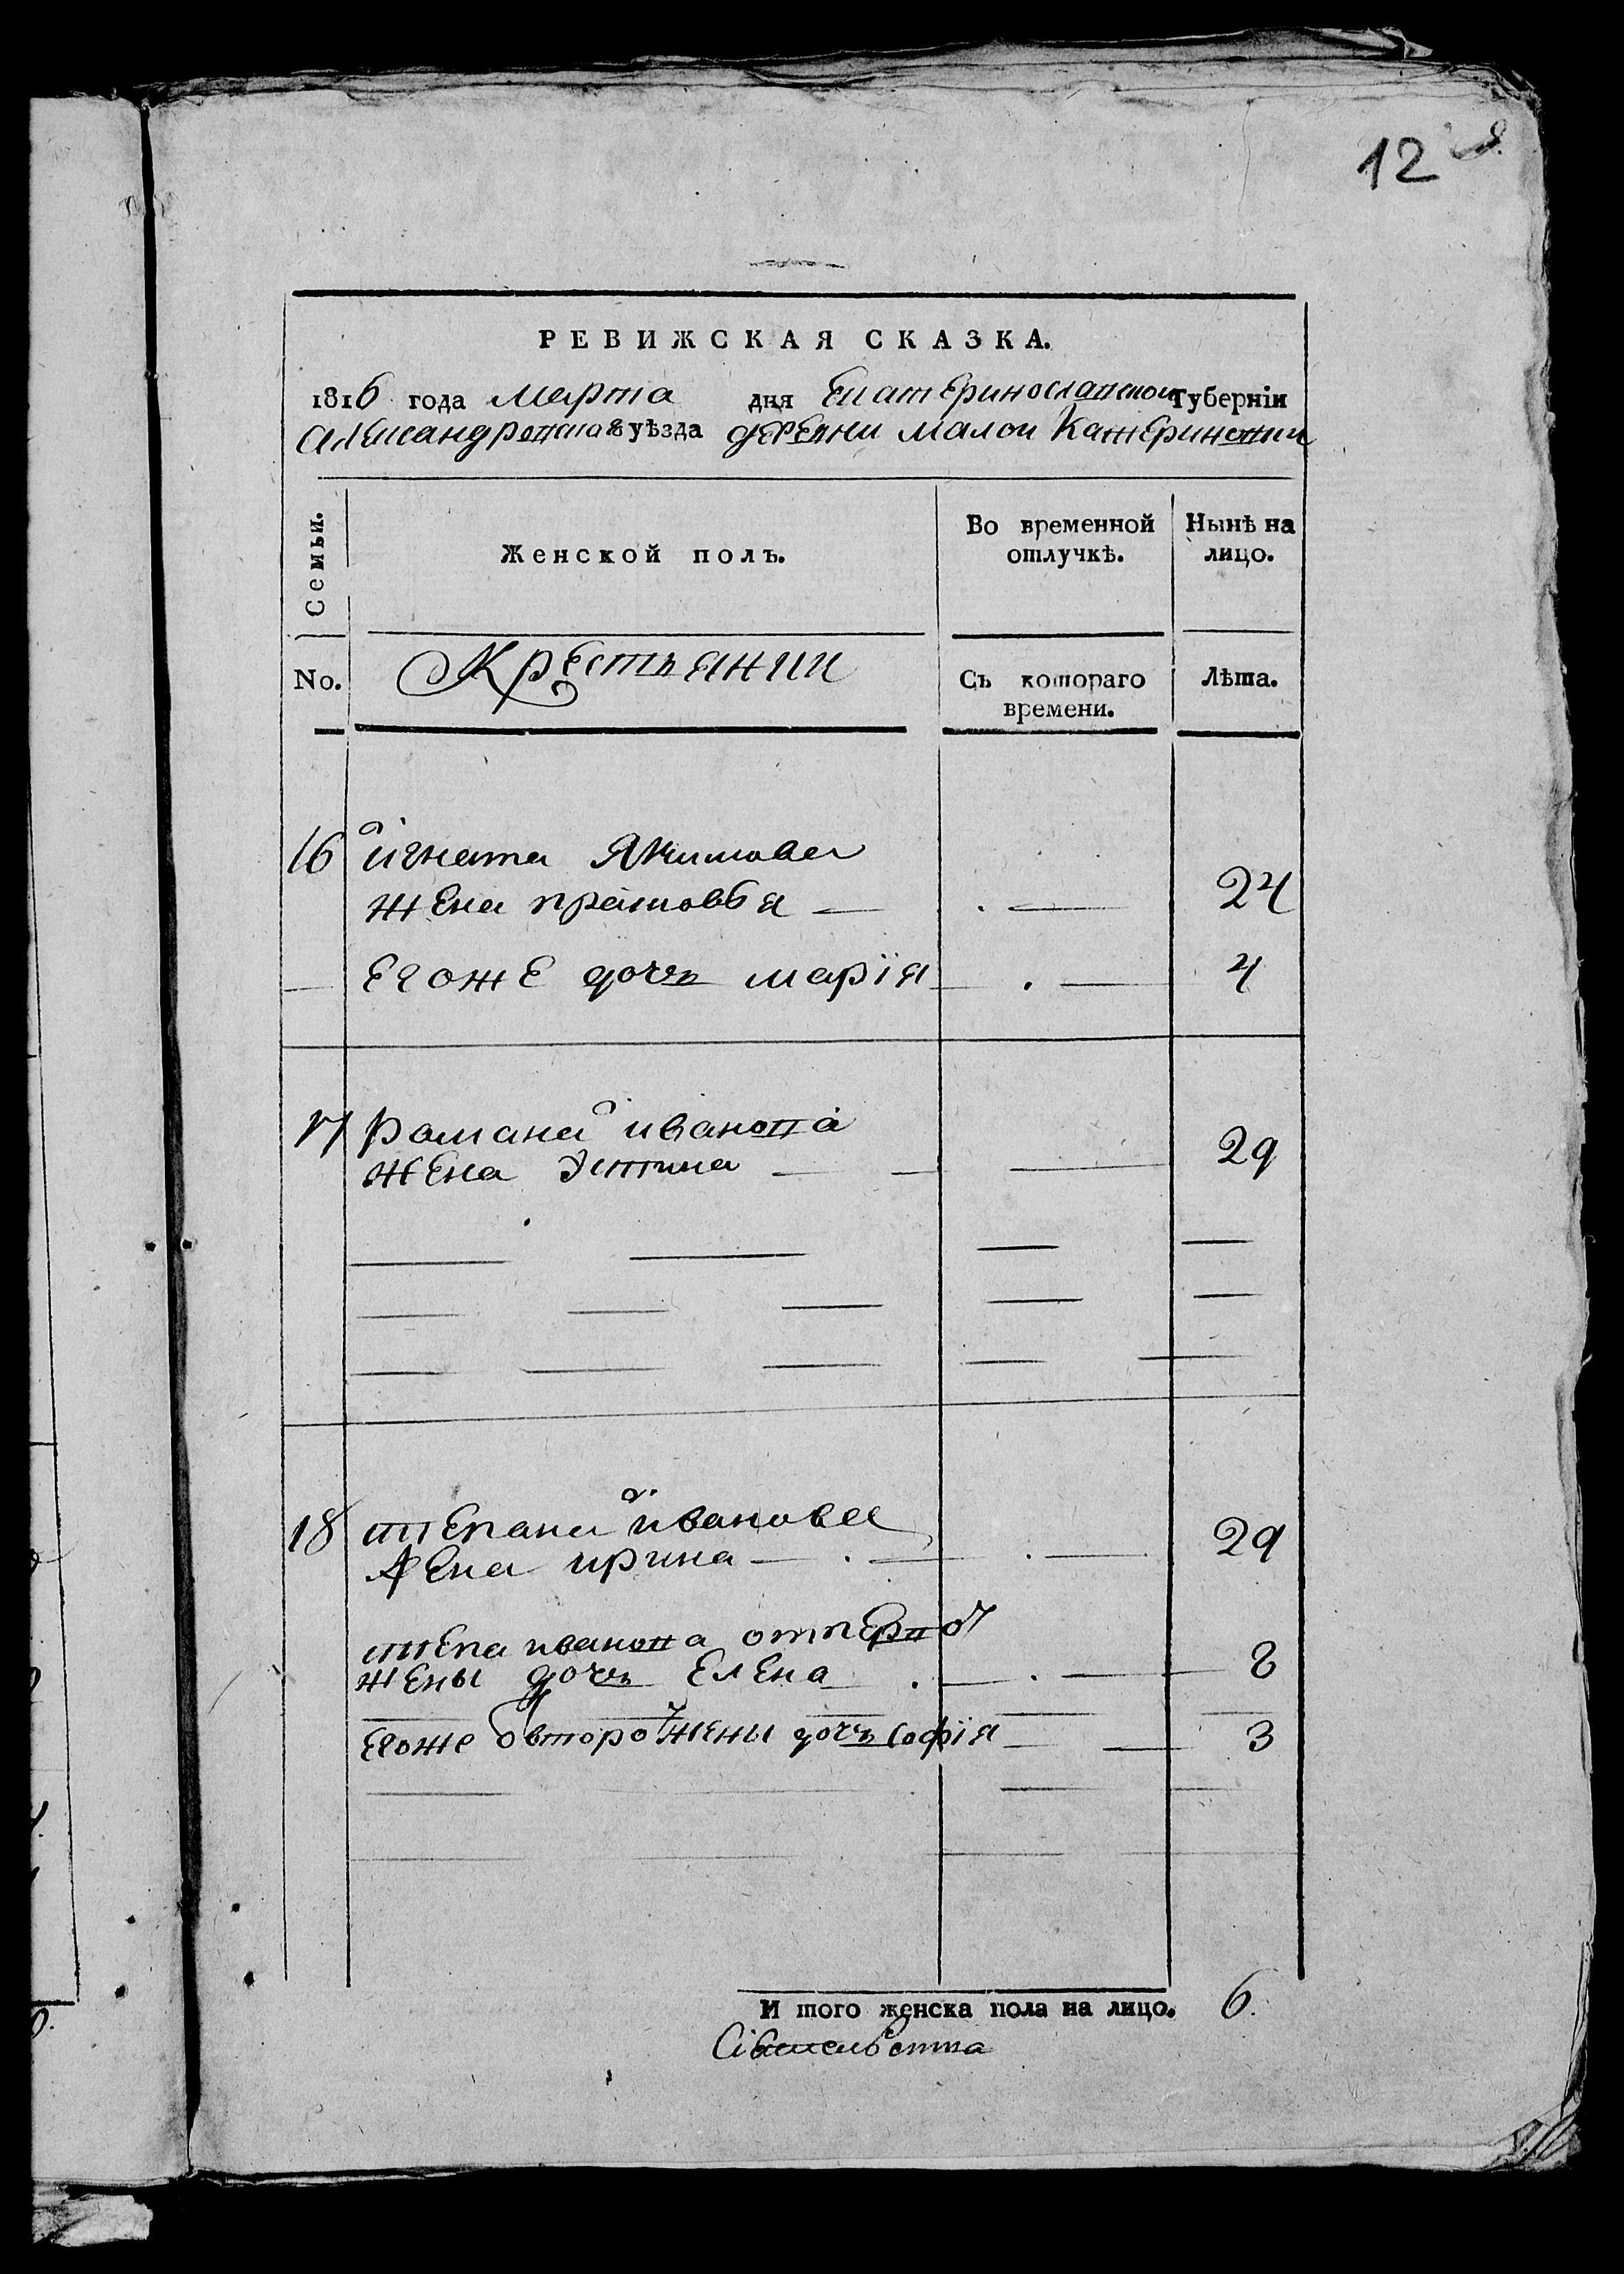 12
РЕВИЖСКАЯ СКАЗКА.
1816 года марта дня Екатеринославской Губерніи
Александровскаго уѣзда деревни малой Катериновки
Семьи.
Женской полъ.
Во временной отлучкѣ.
Нынѣ на лицо.
No.
Крестьянии
Съ котораго времени.
Лѣта.
16 игната Якимова
жена прасковья 24
Егоже дочь марія 4
17 Романа иванова
жена 29
18 степана иванова
жена ирина 29
степа иванова отпервой
жены дочь Елена 8
Егоже второй жены дочь софія 3
И того женска пола на лицо. 6.